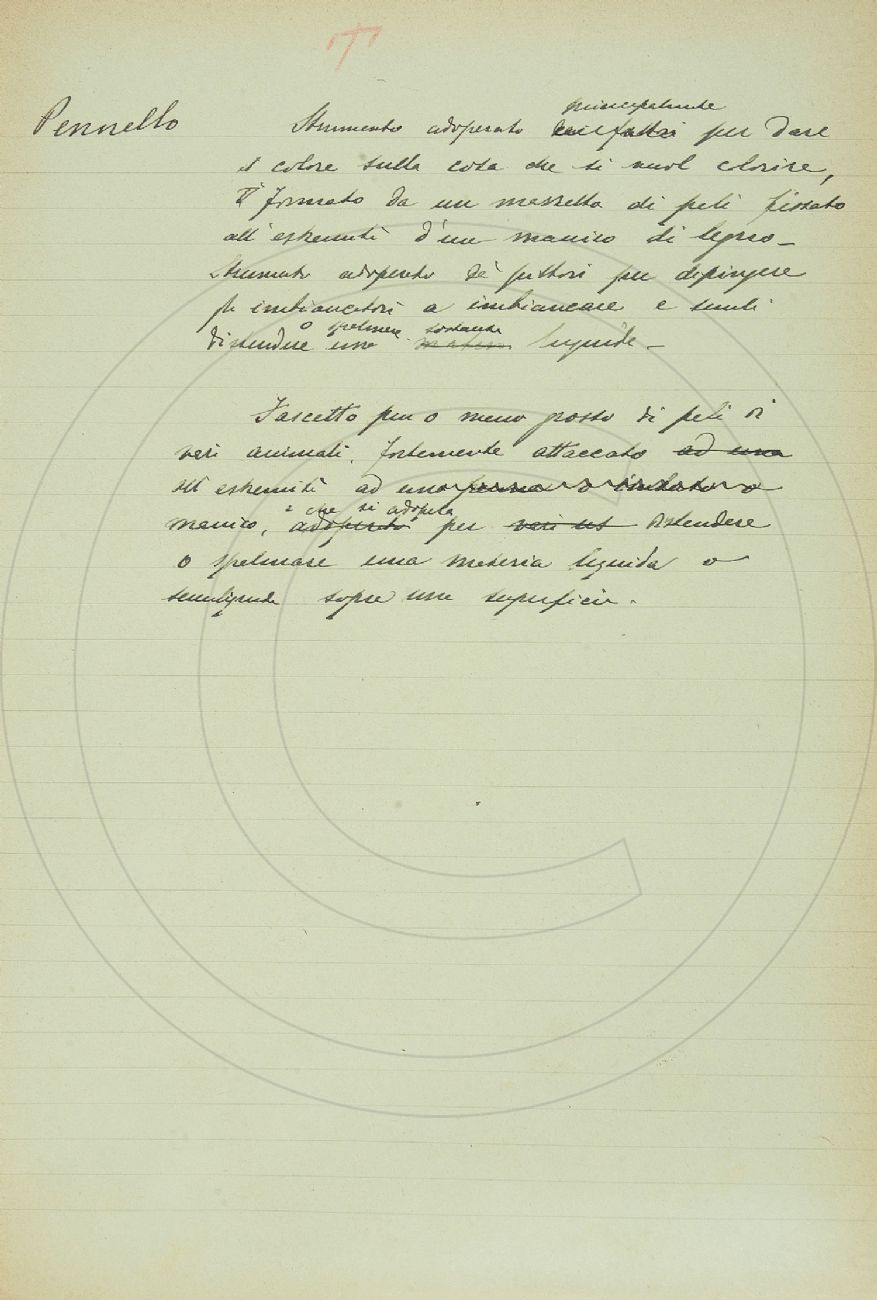 Pennello
principalmente
Strumento adoperato per dare
il colore sulla cosa che si vuol colorire,
È formato da un mazzetto di peli fissato
all'estremità d'un manico di legno_
Strumento adoperato da' pittori per dipingere
gli imbiancatori a imbiancare e simili
o spalmare sostanze
distendere una liquide_
Fascetto più o meno grosso di peli di
vari animali, fortemente attaccato ad una
all'estremità ad una penna o
che si adopeta
manico, adoperato per distendere
o spalmare una materia liquida o
semiliquida sopra una superficie.